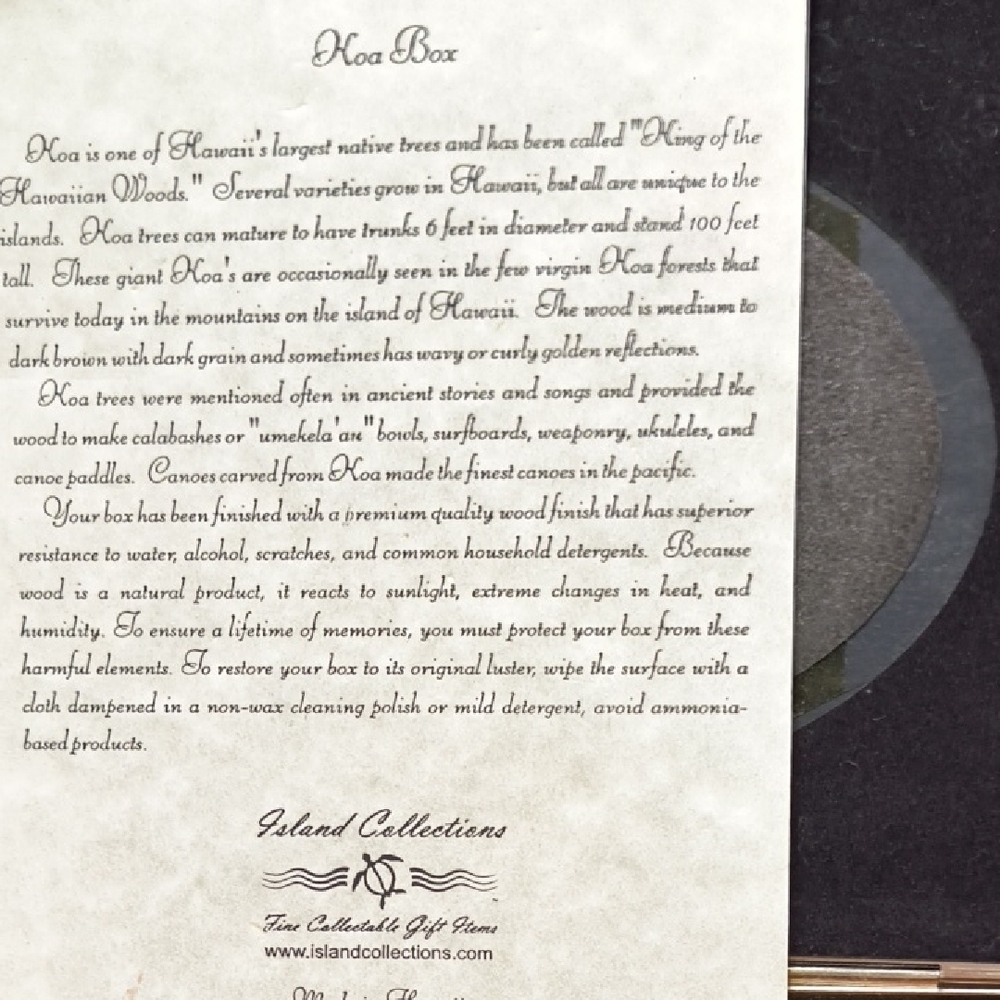 Koa Box
Koa is one of Hawaii's largest native trees and has been called "King of the
Hawaiian Woods." Several varieties grow in Hawaii, but all are unique to the
islands. Koa trees can mature to have trunks 6 feet in diameter and stand 100 feet
tall. These giant Koa's are occasionally seen in the few virgin Koa forests that
survive today in the mountains on the island of Hawaii. The wood is medium to
dark brown with dark grain and sometimes has wavy or curly golden reflections.
Koa trees were mentioned often in ancient stories and songs and provided the
wood to make calabashes or "umekela'au" bowls, surfboards, weaponry, ukuleles, and
canoe paddles. Canoes carved from Koa made the finest canoes in the pacific.
Your box has been finished with a premium quality wood finish that has superior
resistance to water, alcohol, scratches, and common household detergents. Because
wood is a natural product, it reacts to sunlight, extreme changes in heat, and
humidity. To ensure a lifetime of memories, you must protect your box from these
harmful elements. To restore your box to its original luster, wipe the surface with a
cloth dampened in a non-wax cleaning polish or mild detergent, avoid ammonia-
based products.
Island Collections
Fine Collectable Gift Items
www.islandcollections.com